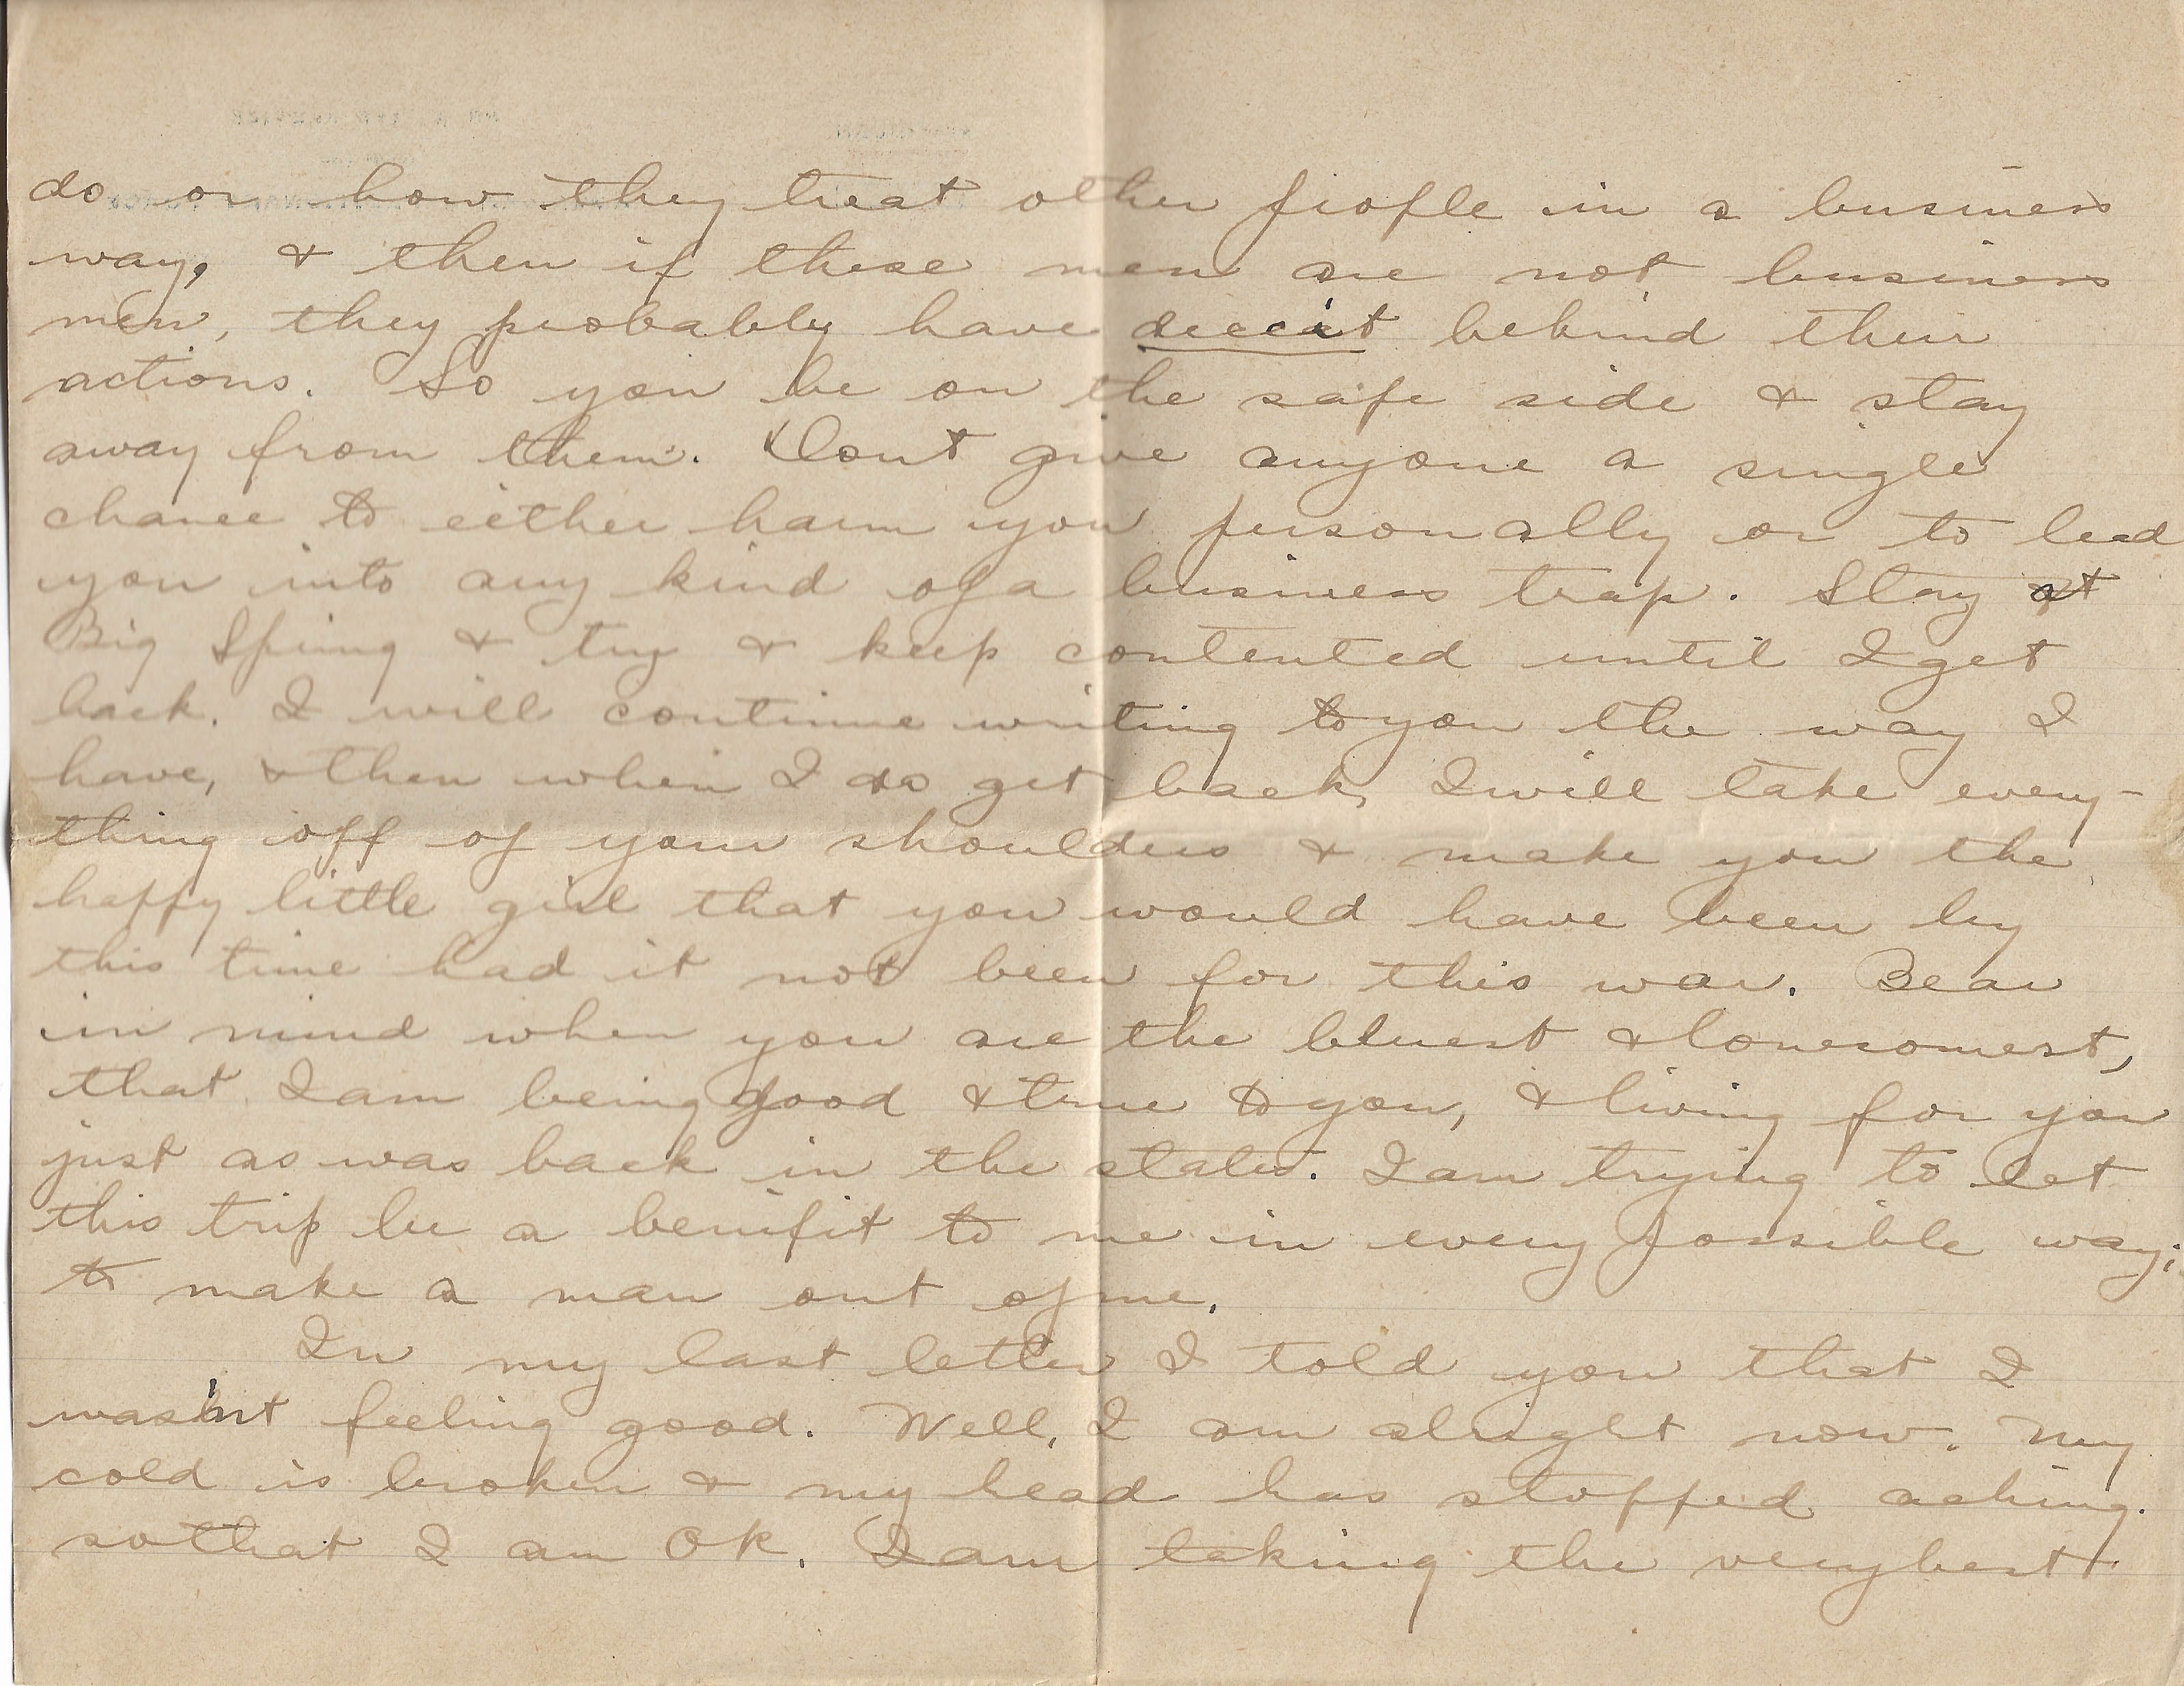 do or how they treat other piople in a business
way, & then if these men are not business
men, they probably have deceit behind their
actions. So you be on the safe side & stay
away from them. Dont give anyone a single
chance to either harm you personally or to lead
you into any kind of a business trap. Stay at
Big Spring & try & keep contented until I get
back. I will continue writing to you the way I
have, & then when I do get back, I will take every-
thing off of your shoulders & make you the
happy little girl that you would have been by
this time had it not been for this war. Bear
in mind when you are the bluest & lonesomest,
that I am being good & true to you, & living for you
just as was back in the states. I am trying to let
this trip be a benifit to me in every possible way;
to make a man out of me.
In my last letter I told you that I
was'nt feeling good. Well, I am alright now. My
cold is broken & my head has stopped aching.
so that I am OK. I am taking the very best